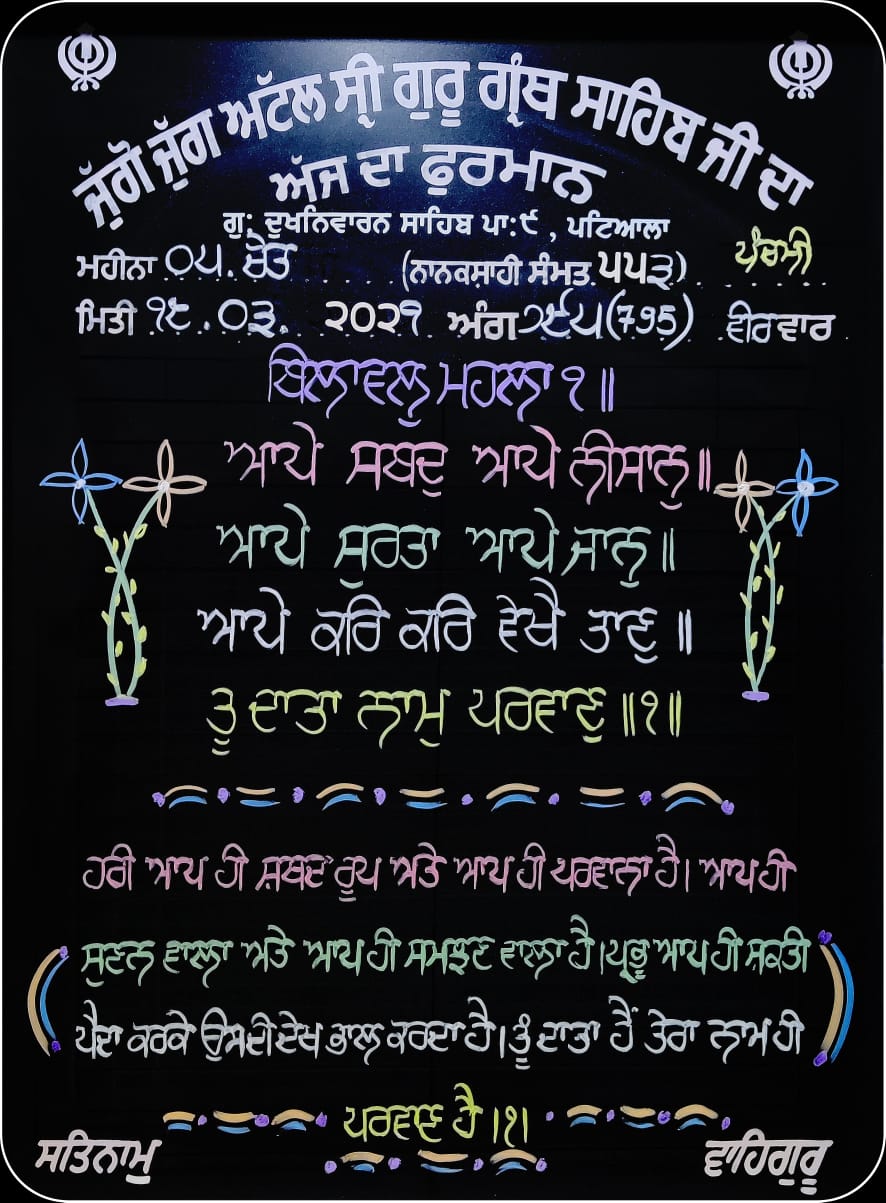 ਜੁੱਗੋ ਜੁੱਗ ਅਟੱਲ ਸ੍ਰੀ ਗੁਰੂ ਗ੍ਰੰਥ ਸਾਹਿਬ ਜੀ ਦਾ
ਅੱਜ ਦਾ ਫੁਰਮਾਨ
ਗੁ: ਦੁਖਨਿਵਾਰਨ ਸਾਹਿਬ ਪਾ:੯ , ਪਟਿਆਲਾ
ਮਹੀਨਾ ੦੫. ਚੇਤ (ਨਾਨਕਸ਼ਾਹੀ ਸੰਮਤ ੫੫੩) ਪੰਚਮੀ
ਮਿਤੀ ੧੮.੦੩. ੨੦੨੧ ਅੰਗ ੭੯੫(795) ਵੀਰਵਾਰ
ਬਿਲਾਵਲੁ ਮਹਲਾ ੧ ॥
ਆਪੇ ਸਬਦੁ ਆਪੇ ਨੀਸਾਨੁ ॥
ਆਪੇ ਸੁਰਤਾ ਆਪੇ ਜਾਨੁ ॥
ਆਪੇ ਕਰਿ ਕਰਿ ਵੇਖੈ ਤਾਣੁ ॥
ਤੂ ਦਾਤਾ ਨਾਮੁ ਪਰਵਾਣੁ ॥੧॥
ਹਰੀ ਆਪ ਹੀ ਸ਼ਬਦ ਰੂਪ ਅਤੇ ਆਪ ਹੀ ਪਰਵਾਨਾ ਹੈ। ਆਪ ਹੀ
ਸੁਣਨ ਵਾਲਾ ਅਤੇ ਆਪ ਹੀ ਸਮਝਣ ਵਾਲਾ ਹੈ।ਪ੍ਰਭੂ ਆਪ ਹੀ ਸ਼ਕਤੀ
ਪੈਦਾ ਕਰਕੇ ਉਸਦੀ ਦੇਖ ਭਾਲ ਕਰਦਾ ਹੈ।ਤੂੰ ਦਾਤਾ ਹੈਂ ਤੇਰਾ ਨਾਮ ਹੀ
ਪਰਵਾਣ ਹੈ।੧।
ਸਤਿਨਾਮੁ ਵਾਹਿਗੁਰੂ